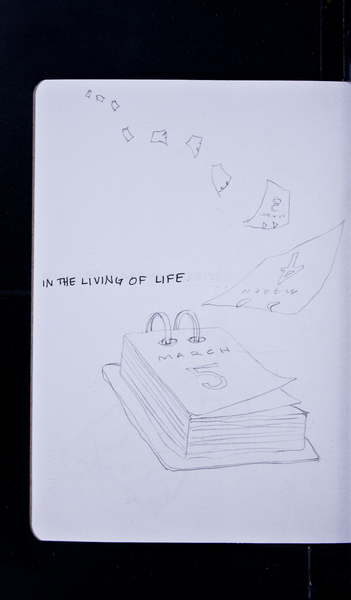 3
MARCH
4
MARCH
IN THE LIVING OF LIFE
MARCH
5